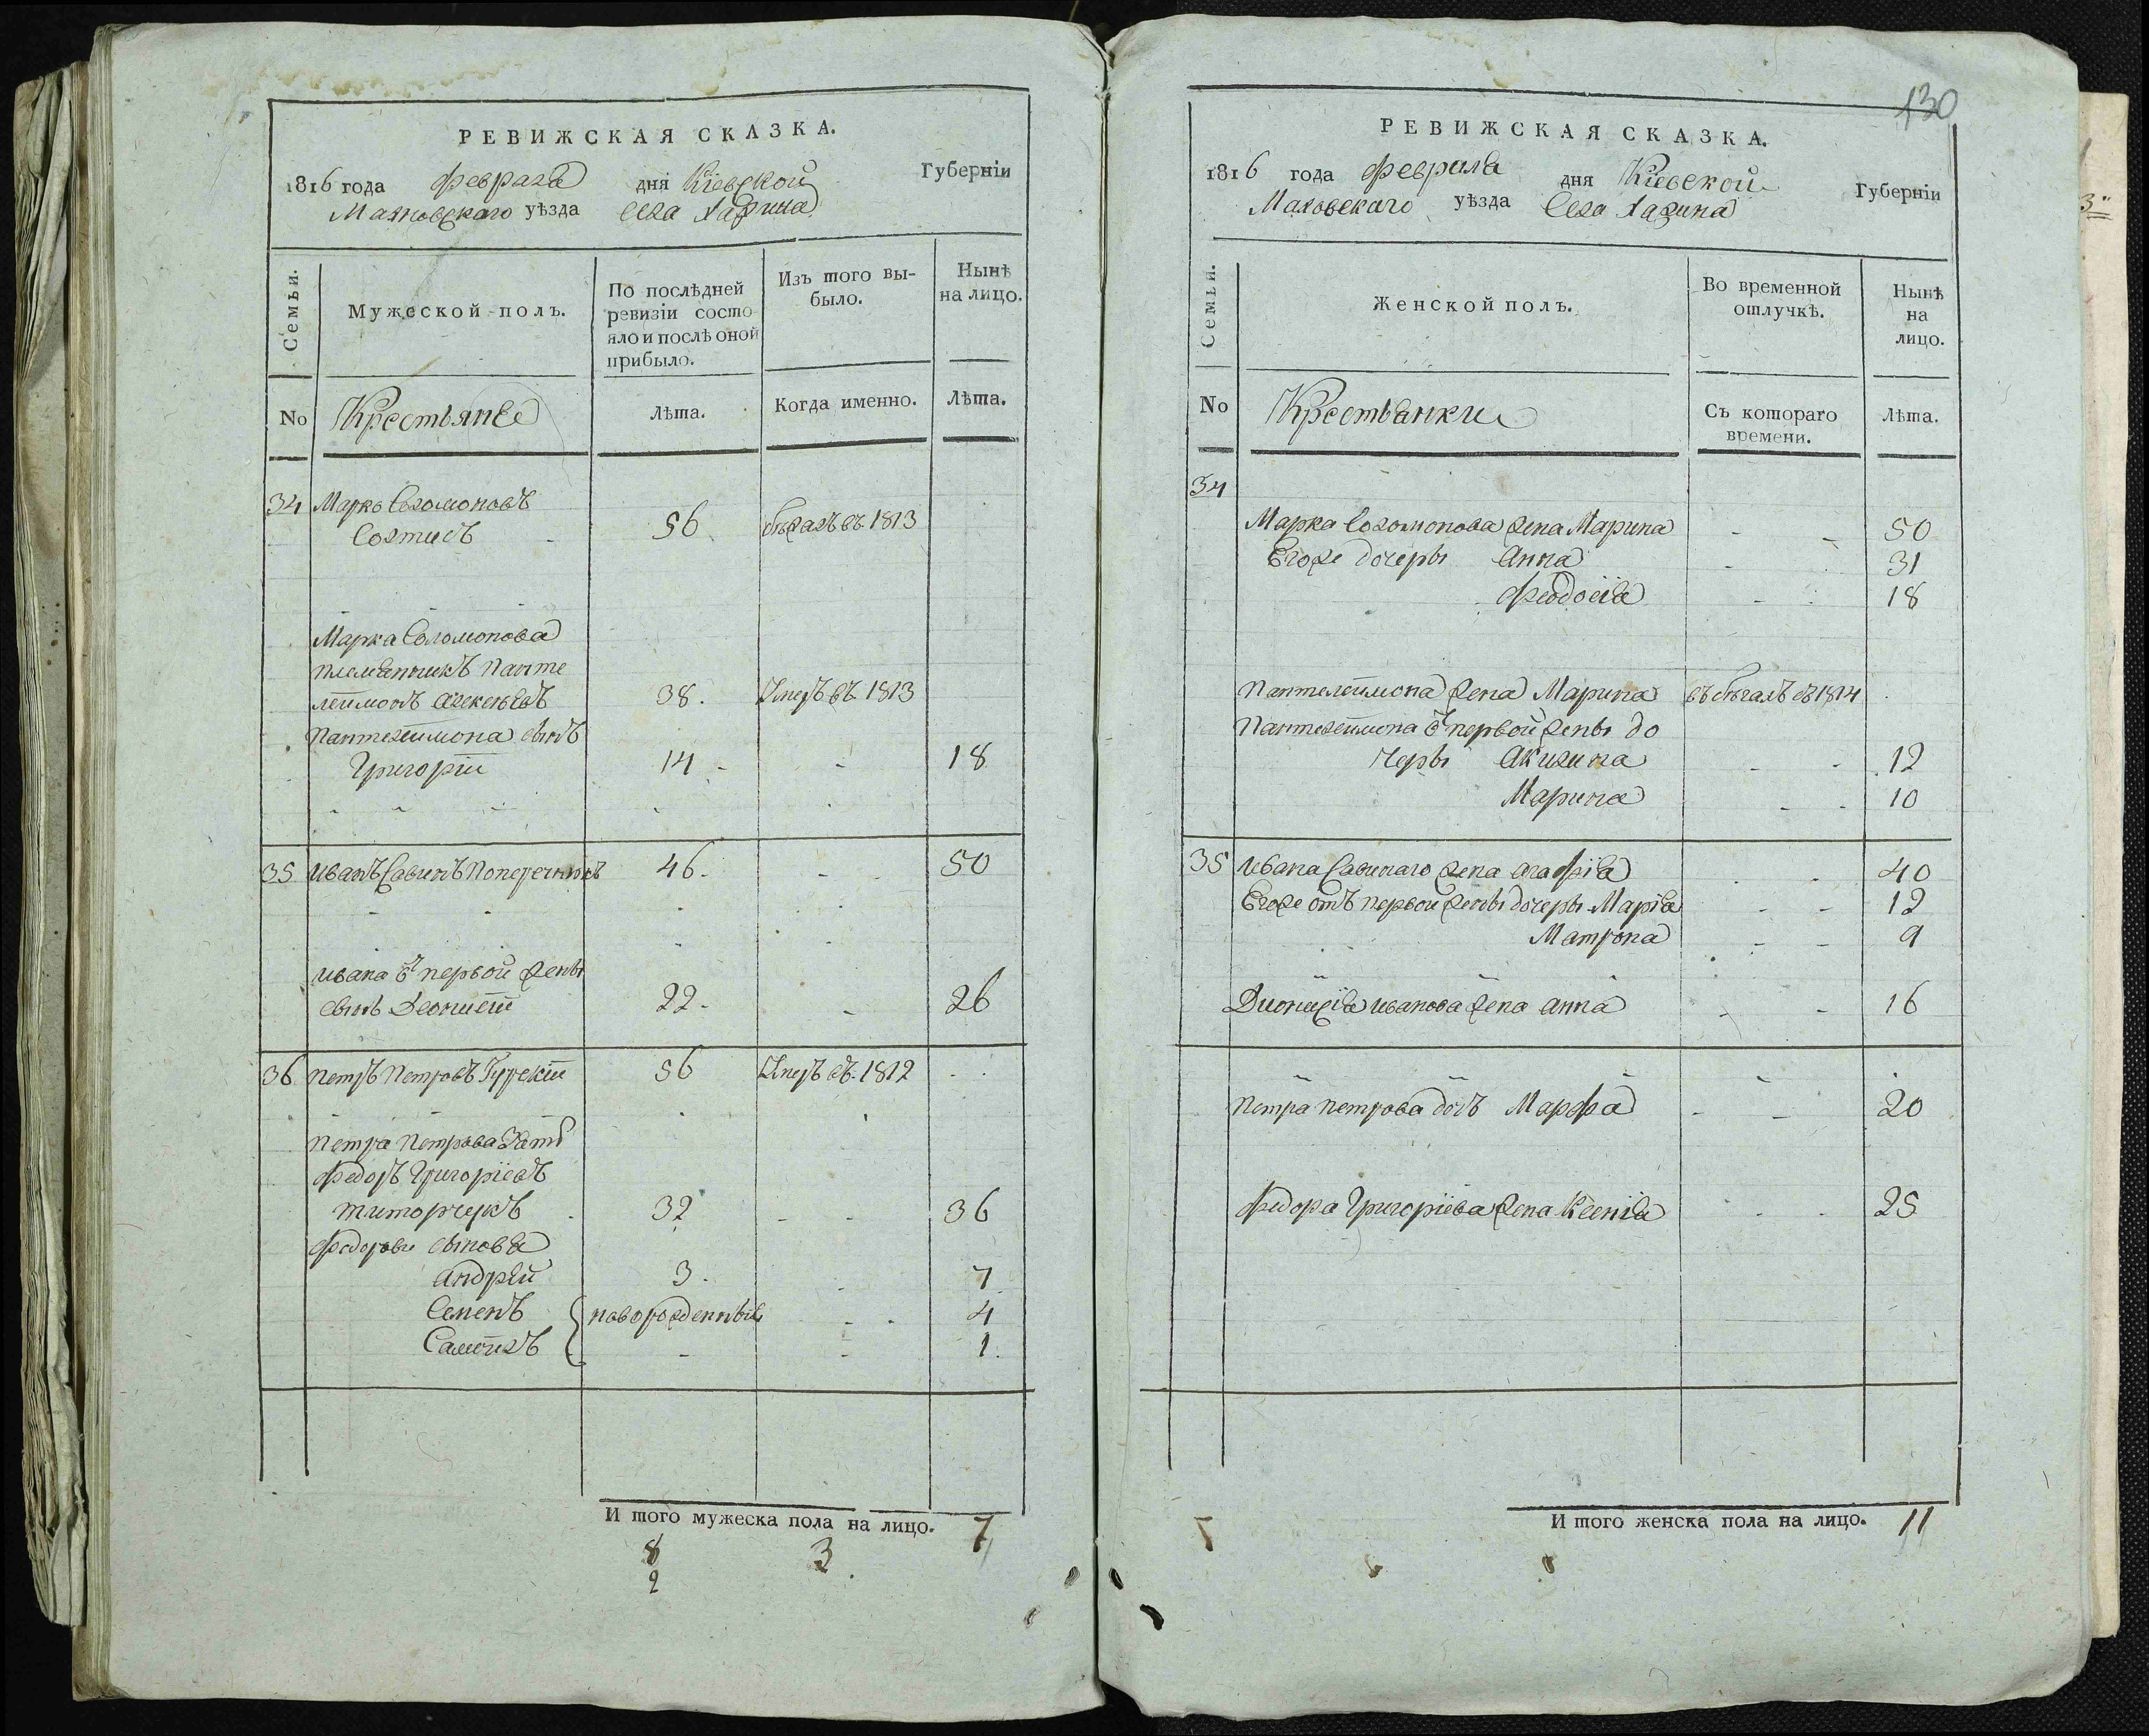 РЕВИЖСКАЯ СКАЗКА.
1816 года Февраля дня Кіевской Губерніи
Махновскаго уѣзда Села
Семьи.
Мужеской полъ.
По послѣдней
ревизіи состо
яло и послѣ оной
прибыло.
Изъ того вы-
было.
Нынѣ
на лицо.
No
Крестьянѣ
Лѣта.
Когда именно.
Лѣта.
34 Марко Соломоновъ
56 въ 1813
Марка Соломонова
племянникъ Панте
леймонъ Алексѣевъ 38. Умеръ въ 1813
Пантелеймона сынъ
Григорій 14 - - 18
35 Иванъ Савинъ 46. - - 50
Ивана от первой жены
сынъ Деонисій 22- - 26
36 Петръ Петровъ 56 Умеръ въ 1812
Петра Петрова Зять
Федоръ Григоріевъ
Титорчукъ 32 - - 36
Федоровы сыновья
Андрѣй 3. - 7
Семенъ новорожденный - - 4
Самойлъ - - 1.
И того мужеска пола на лицо. 7
8 3
2
130
РЕВИЖСКАЯ СКАЗКА.
1816 года Февраля дня Кіевской Губерніи
Маховскаго уѣзда Села
Семьи.
Женской полъ.
Во временной
отлучкѣ.
Нынѣ
на
лицо.
No
Крестьянки
Съ котораго
времени.
Лѣта.
34
Марка Соломонова жена Марина - - 50
Егоже дочеры Анна - 31
Феодосія - - 18
Пантелеймона жена Марина въ бѣгахъ съ 1814
Пантелеймона от первой жены до
черы Акилина - - 12
Марина - - 10
35 Ивана Савинаго жена Агафія - - 40
Егоже отъ первой жены дочеры Марія - - 12
Матрона - - 9
Дионисія Иванова жена Анна - - 16
Петра Петрова дочъ Марфа - - 20
Федора Григоріева жена Ксенія - - 25
И того женска пола на лицо. 11